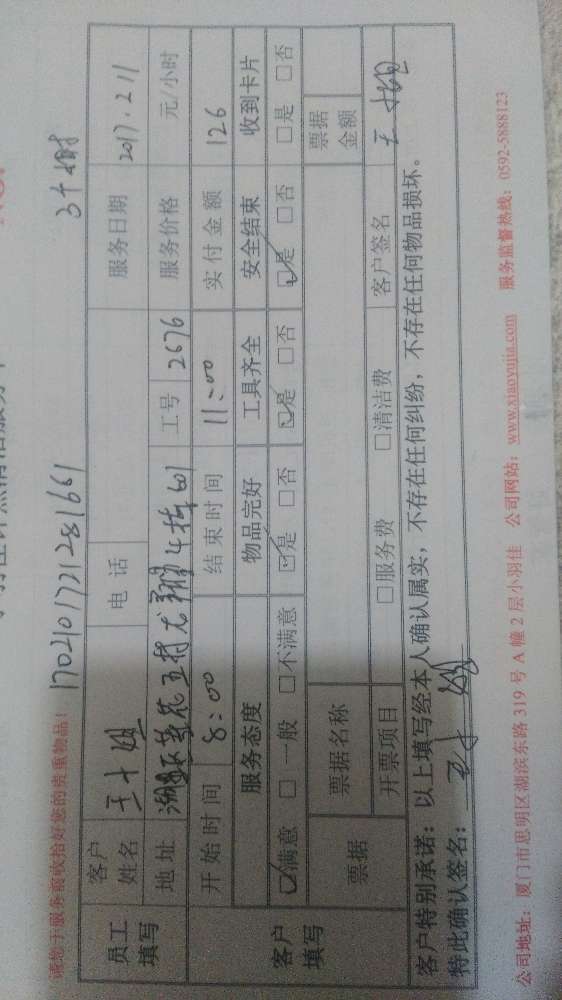 请您于服务前收拾好您的贵重物品！ 1702101721281661 3小时
员工填写 客户姓名 王小姐 电话 服务日期 2017.2.11
地址 工号 2676 服务价格 元/小时
客户填写 开始时间 8:00 结束时间 11:00 实付金额 126
服务态度 物品完好 工具齐全 安全结束 收到卡片
☑满意 □一般 □不满意 ☑是 □否 ☑是 □否 ☑是 □否 □是 □否
票据 票据名称 票据金额
开票项目 □服务费 □清洁费 客户签名
客户特别承诺：以上填写经本人确认属实，不存在任何纠纷，不存在任何物品损坏。
特此确认签名：
公司地址：厦门市思明区湖滨东路 319 号 A 幢 2 层小羽佳 公司网站：www.xiaoyujia.com 服务监督热线：0592-5888123